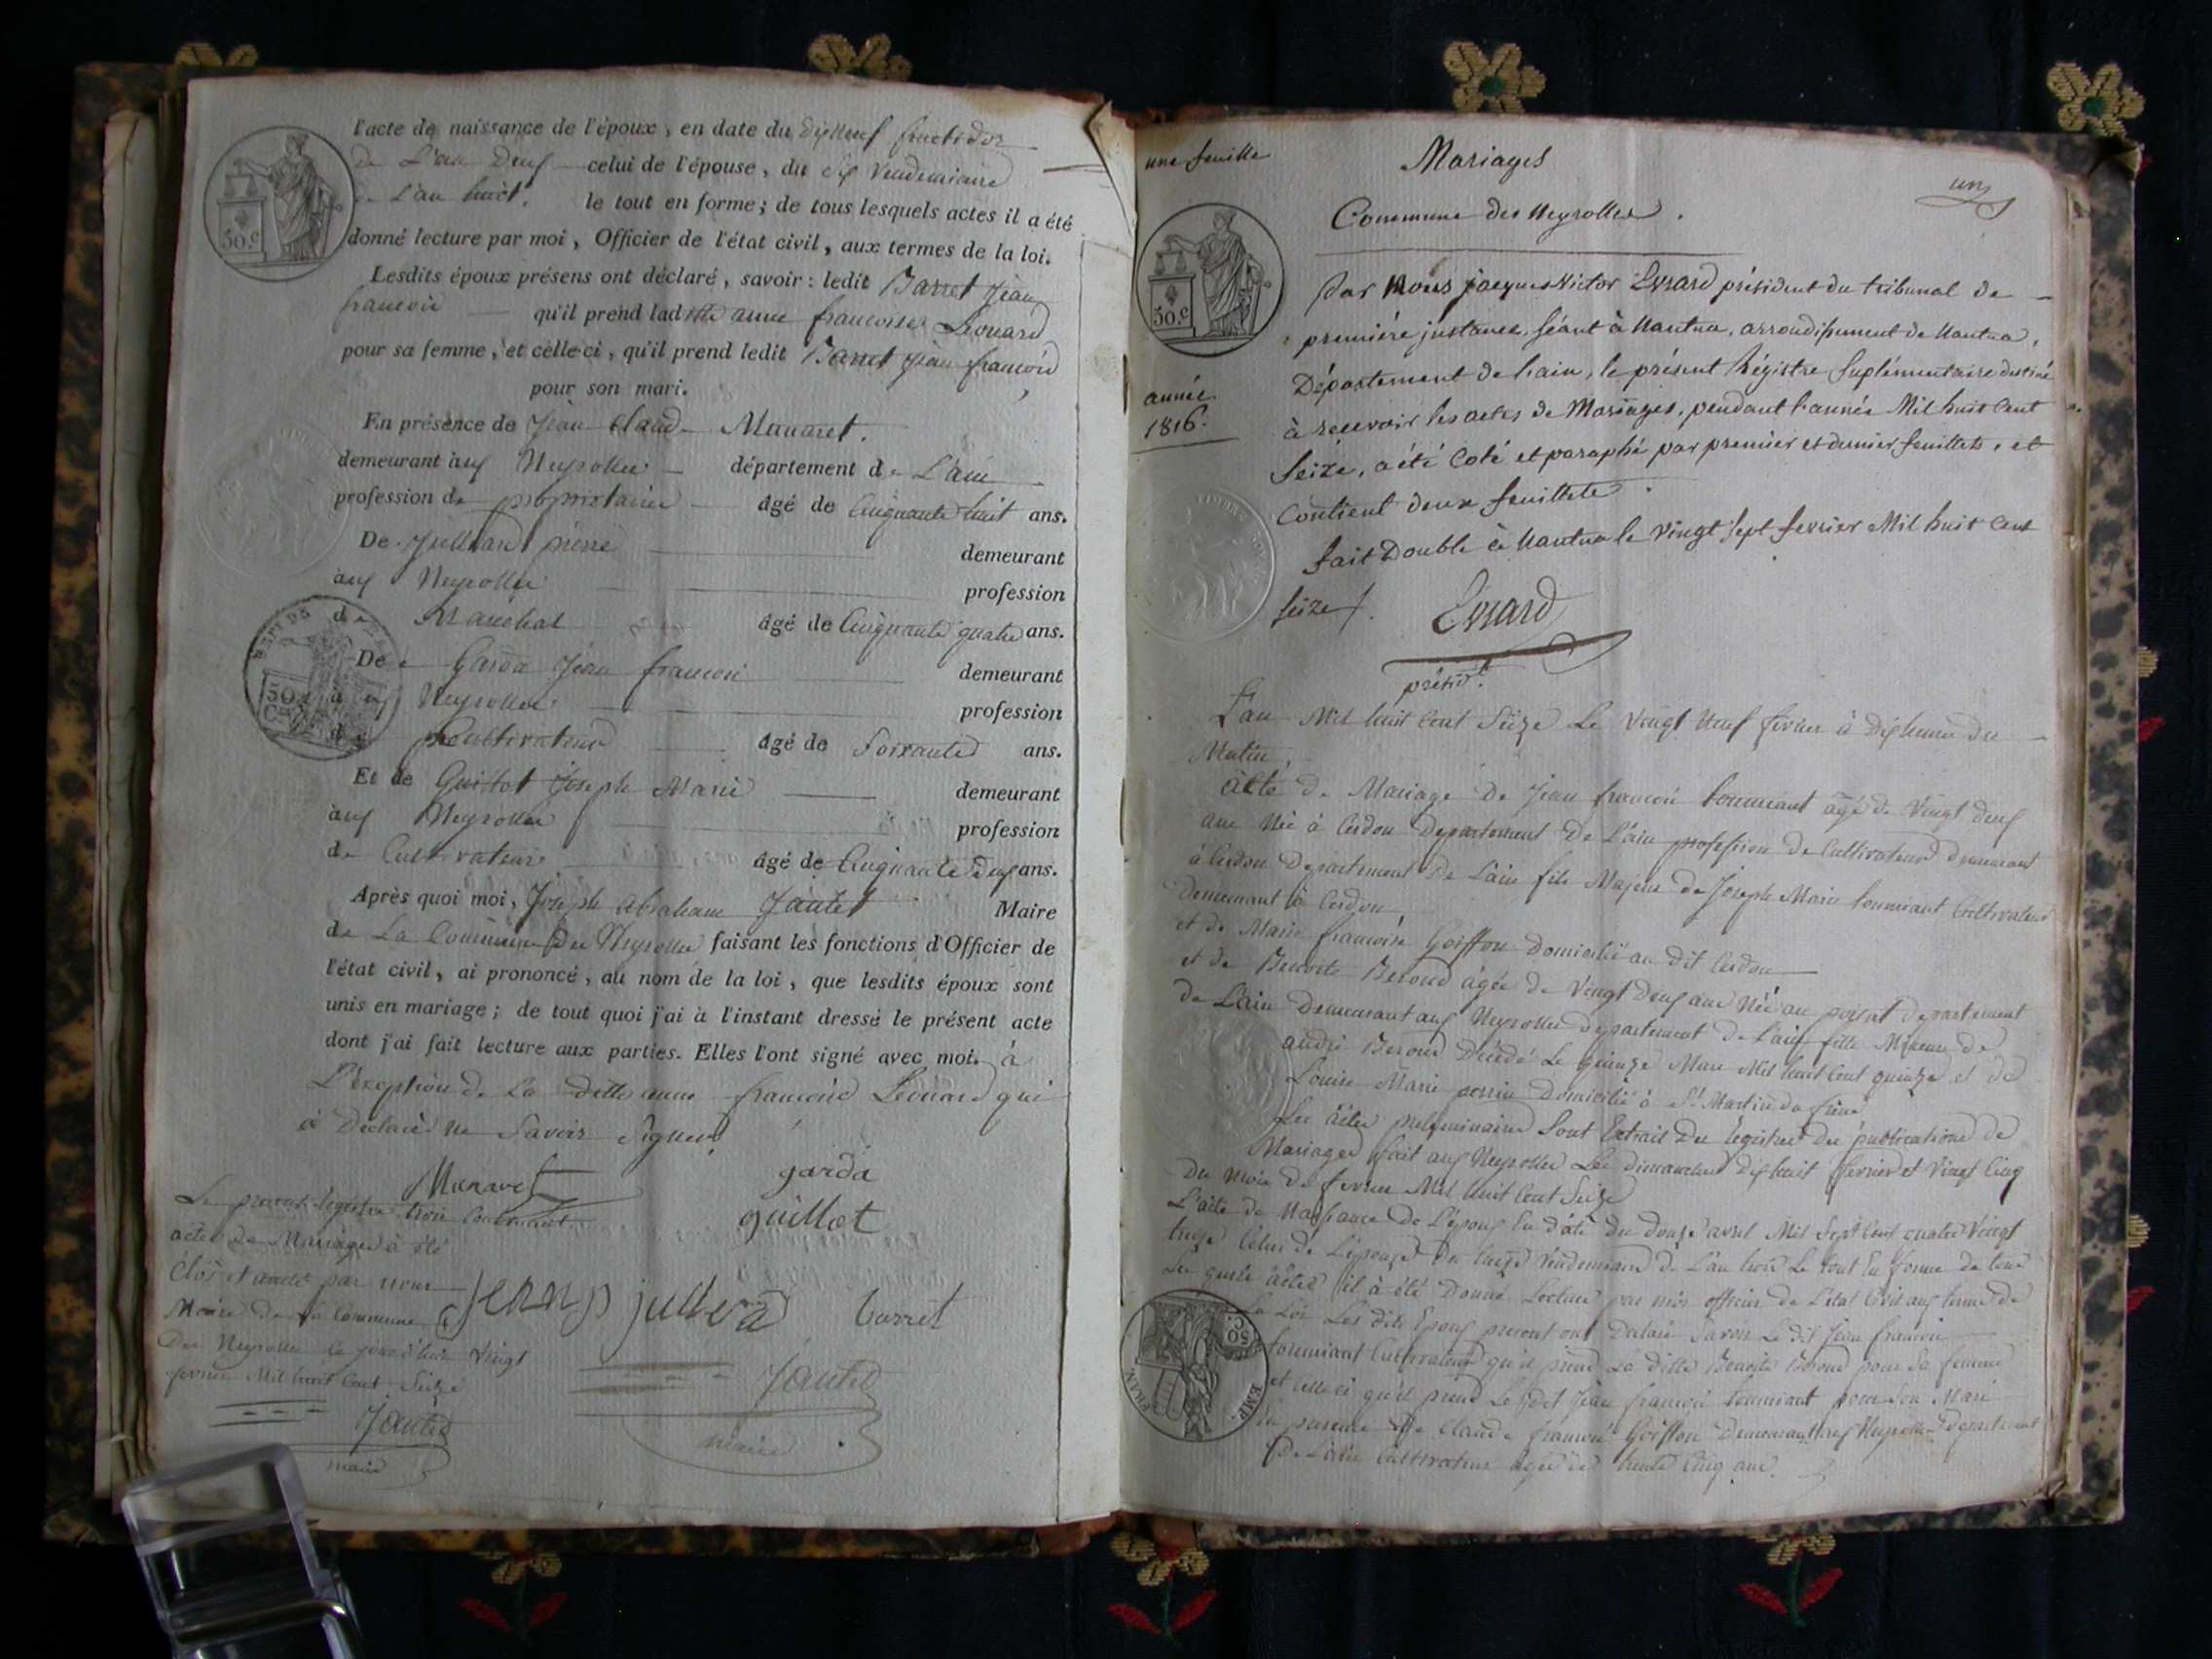 l'acte de naissance de l'époux, en date du dixneuf fructidor
de L'an Deux celui de l'épouse, du six Vendemiaire
de L'an huit. le tout en forme; de tous lesquels actes il a été
donné lecture par moi, Officier de l'état civil, aux termes de la loi.
Lesdits époux présens ont déclaré, savoir: ledit Barret Jean
francois qu'il prend laditte anne francoise Léonard
pour sa femme, et celle-ci, qu'il prend ledit Barret Jean francois
pour son mari.
En présence de Jean Claude Munaret.
demeurant aux Neyrolles département de L'ain
profession de proprietaire âgé de Cinquante huit ans.
De Julliard pierre demeurant
aux Neyrolles profession
de Maréchal âgé de Cinquante quatre ans.
De Garda Jean francois demeurant
à aux Neyrolles profession
de Cultivateur âgé de Soixante ans.
Et de Guillot Joseph Marie demeurant
aux Neyrolles profession
de Cultivateur âgé de Cinquante deux ans.
Après quoi moi, Joseph Abraham Jantet Maire
de La Commune des Neyrolles faisant les fonctions d'Officier de
l'état civil, ai prononcé, au nom de la loi, que lesdits époux sont
unis en mariage; de tout quoi j'ai à l'instant dressé le présent acte
dont j'ai fait lecture aux parties. Elles l'ont signé avec moi. à
L'exception de La ditte anne francoise Léonard qui
à Déclaré ne Savoir Signer
Munaret garda
guillot
Le present registre trois Contenant
actes de Mariages à été
Clôs et arreté par nous
Maire de la Commune
Des Neyrolles le jourd'hui Vingt
fevrier Mil huit Cent Seize
Jantet
maire
jean p julliard barret
Jantet
maire
une feuille
Mariages
un
Commune des Neyrolles.
50.c
année
1816.
Par Nous jacques Victor Evrard président du tribunal de
première instance, séant à Nantua, arrondissement de Nantua,
Département de l'ain, le présent Régistre suplémentaire destiné
à recevoir les actes de Mariages, pendant l'année Mil huit Cent
Seize, a été Coté et paraphé par premier et dernier feuillets, et
Contient deux feuillets.
fait Double à Nantua le Vingt Sept fevrier Mil huit Cent
Seize.
Evrard
présidt.
L'an Mil huit Cent Seize Le Vingt Neuf fevrier à Dix heures du
Matin,
acte De Mariage De Jean francois tourniant âgé de Vingt deux
ans Né à Cerdon Departement De L'ain profession de Cultivateur demeurant
à Cerdon Departement De L'ain fils Majeur de Joseph Marie tourniant Cultivateur
Demeurant à Cerdon
et de Marie francoise Goiffon Domiciliè au Dit Cerdon
et de Benoite Beroud âgée de Vingt Deux ans Née au poizat departement
de L'ain Demeurant aux Neyrolles departement de L'ain fille Mineure de
andré Beroud Décédé Le quinze Mars Mil huit Cent quinze et de
Louise Marie perrin Domiciliè à St Martin du frene
Les actes preliminaires Sont Extrait Des registres des publications de
Mariages fait aux Neyrolles Les dimanches dix huit fevrier et Vingt Cinq
Du Mois de fevrier Mil huit Cent Seize
L'acte de Naissance de L'époux En date du Douze avril Mil Sept Cent quatre Vingt
treize Celui de L'épouse du treize Vendemiaire de L'an trois Le tout En forme de tous
Les quels actes il à été Donné Lecture par moi officier de L'état Civil aux termes de
La Loi Les dits Epoux presents ont Déclaré Savoir Le dit Jean francois
tourniant Cultivateur qu'il prend La ditte Benoite Beroud pour Sa femme
et Celle ci qu'il prend Le dit Jean francois tourniant pour Son Mari
En presence De Claude francois Goiffon Demeurant aux Neyrolles Departement
De L'ain Cultivateur agé de trente Cinq ans.